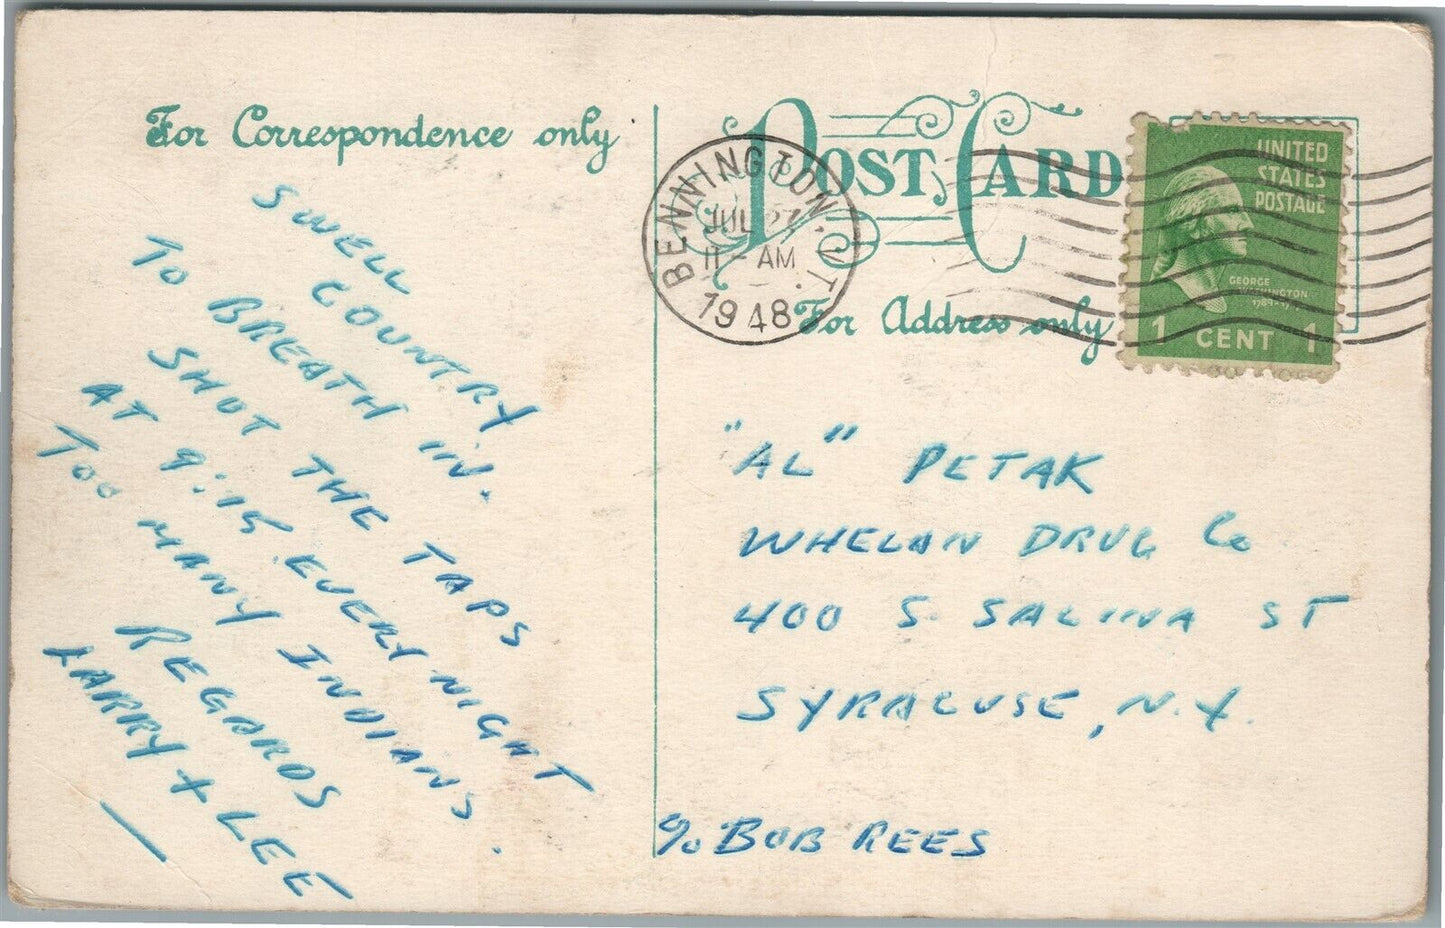 For Correspondence only
SWELL
COUNTRY
TO BREATH IN.
SHUT THE TAPS
AT 9:15 EVERY NIGHT
TOO MANY INDIANS.
REGARDS
LARRY + LEE
POST CARD
For Address only
BENNINGTON, VT.
JUL 27
11 - AM
1948
UNITED
STATES
POSTAGE
GEORGE
WASHINGTON
1 CENT 1
"AL" PETAK
WHELAN DRUG Co
400 S. SALINA ST
SYRACUSE, N.Y.
c/o BOB REES